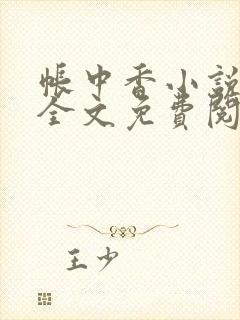 帳中香小說
全文免費閱
王少